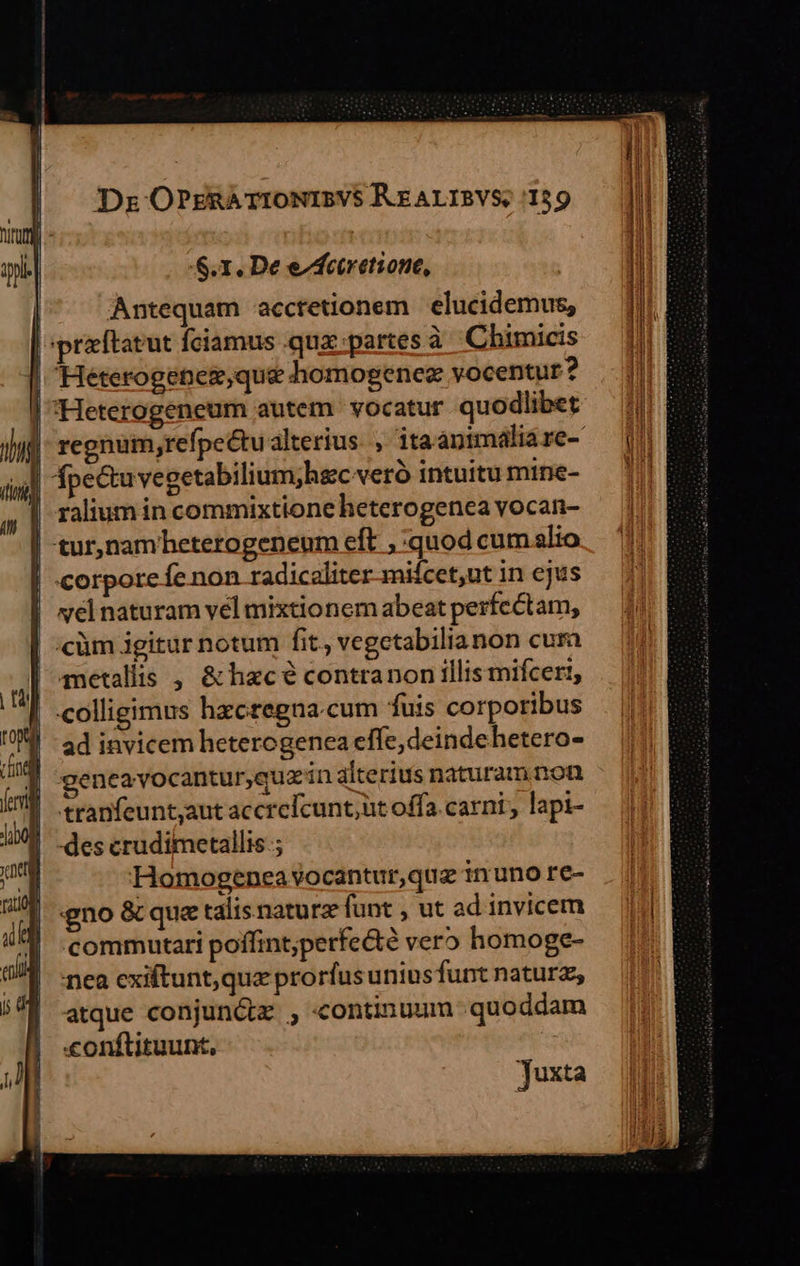 DE OPERATIONIBVS REALIBVS. 159
§.1. De Accretione,
Antequam accretionem elucidemus,
præſtat ut ſciamus quæ partes à Chimicis
Heterogeneæ, quæ homogeneæ vocentur?
Heterogeneum autem vocatur quodlibet
regnum, reſpectu alterius, ita animalia re-
ſpectu vegetabilium, hæc verò intuitu mine-
ralium in commixtione heterogenea vocan-
tur, nam heterogeneum eſt, quod cum alio
corpore ſe non radicaliter miſcet, ut in ejus
vel naturam vel mixtionem abeat perfectam,
cùm igitur notum fit, vegetabilia non cum
metallis, & hæc è contra non illis miſceri,
colligimus hæc regna cum ſuis corporibus
ad invicem heterogenea eſſe, deinde hetero-
genea vocantur, quæ in alterius naturam non
tranſeunt, aut accreſcunt, ut oſſa carni, lapi-
des crudi metallis;
Homogenea vocantur, quæ in uno re-
gno & quæ talis naturæ ſunt, ut ad invicem
commutari poſſint, perfectè vero homoge-
nea exiſtunt, quæ prorſus unius ſunt naturæ,
atque conjunctæ, continuum quoddam
conſtituunt.
Juxta